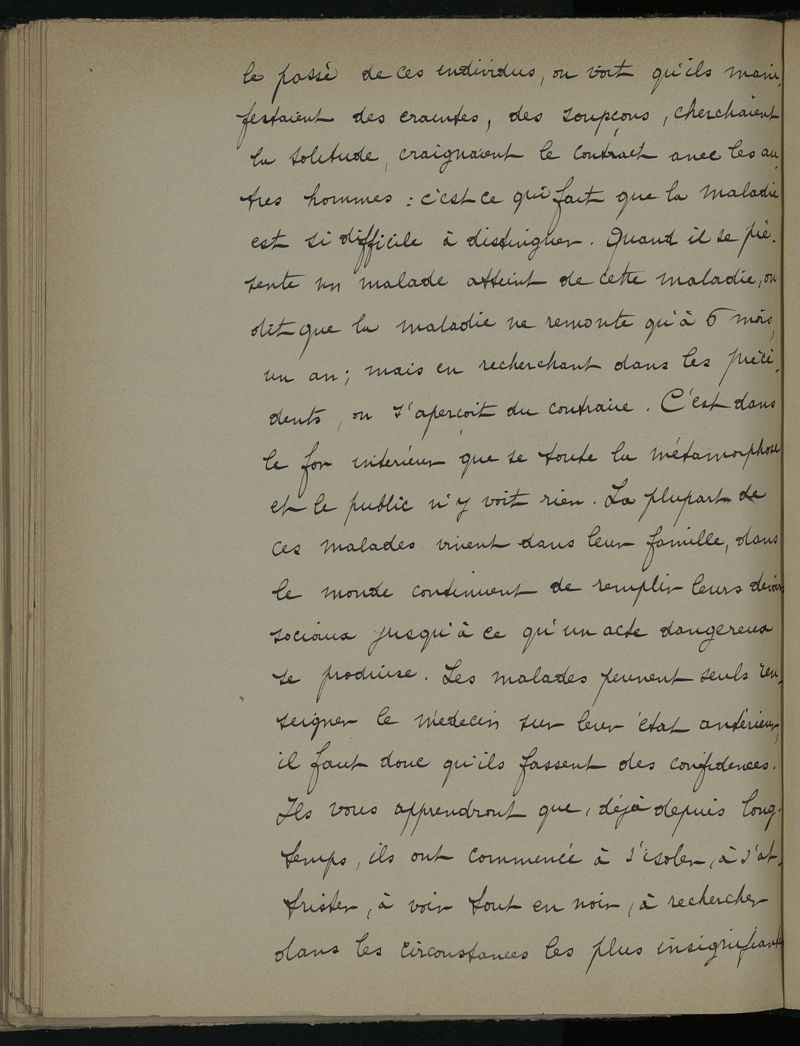 le passé de ces individus, on voit qu'ils mani-
festaient des craintes, des soupçons, cherchaient
la solitude, craignaient le contract avec les au-
tres hommes : c'est ce qui fait que la maladie
est si difficile à distinguer. Quand il se pré-
sente un malade atteint de cette maladie, on
dit que la maladie ne remonte qu'à 6 mois,
un an ; mais en recherchant dans les précé-
dents, on s'aperçoit du contraire. C'est dans
le for intérieur que se toute la métamorphose
et le public n'y voit rien. La plupart de
ces malades vivent dans leur famille, dans
le monde continuent de remplir leurs devoirs
sociaux jusqu'à ce qu'un acte dangereux
se produise. Les malades peuvent seuls ren-
seigner le médecin sur leur état antérieur,
il faut donc qu'ils fassent des confidences.
Ils vous apprendront que, déjà depuis long-
temps, ils ont commencé à s'isoler, à s'at-
trister, à voir tout en noir, à rechercher
dans les circonstances les plus insignifiantes